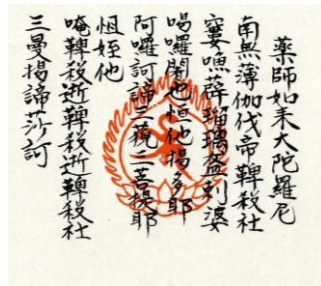 薬師如来大陀羅尼
南無薄伽伐帝鞞殺社
窶嚕薜瑠璃盋剌婆
喝囉闍也怛他揭多耶
阿囉訶諦三藐三菩提耶
怛姪他
唵鞞殺逝鞞殺逝鞞殺社
三曼揭諦莎訶